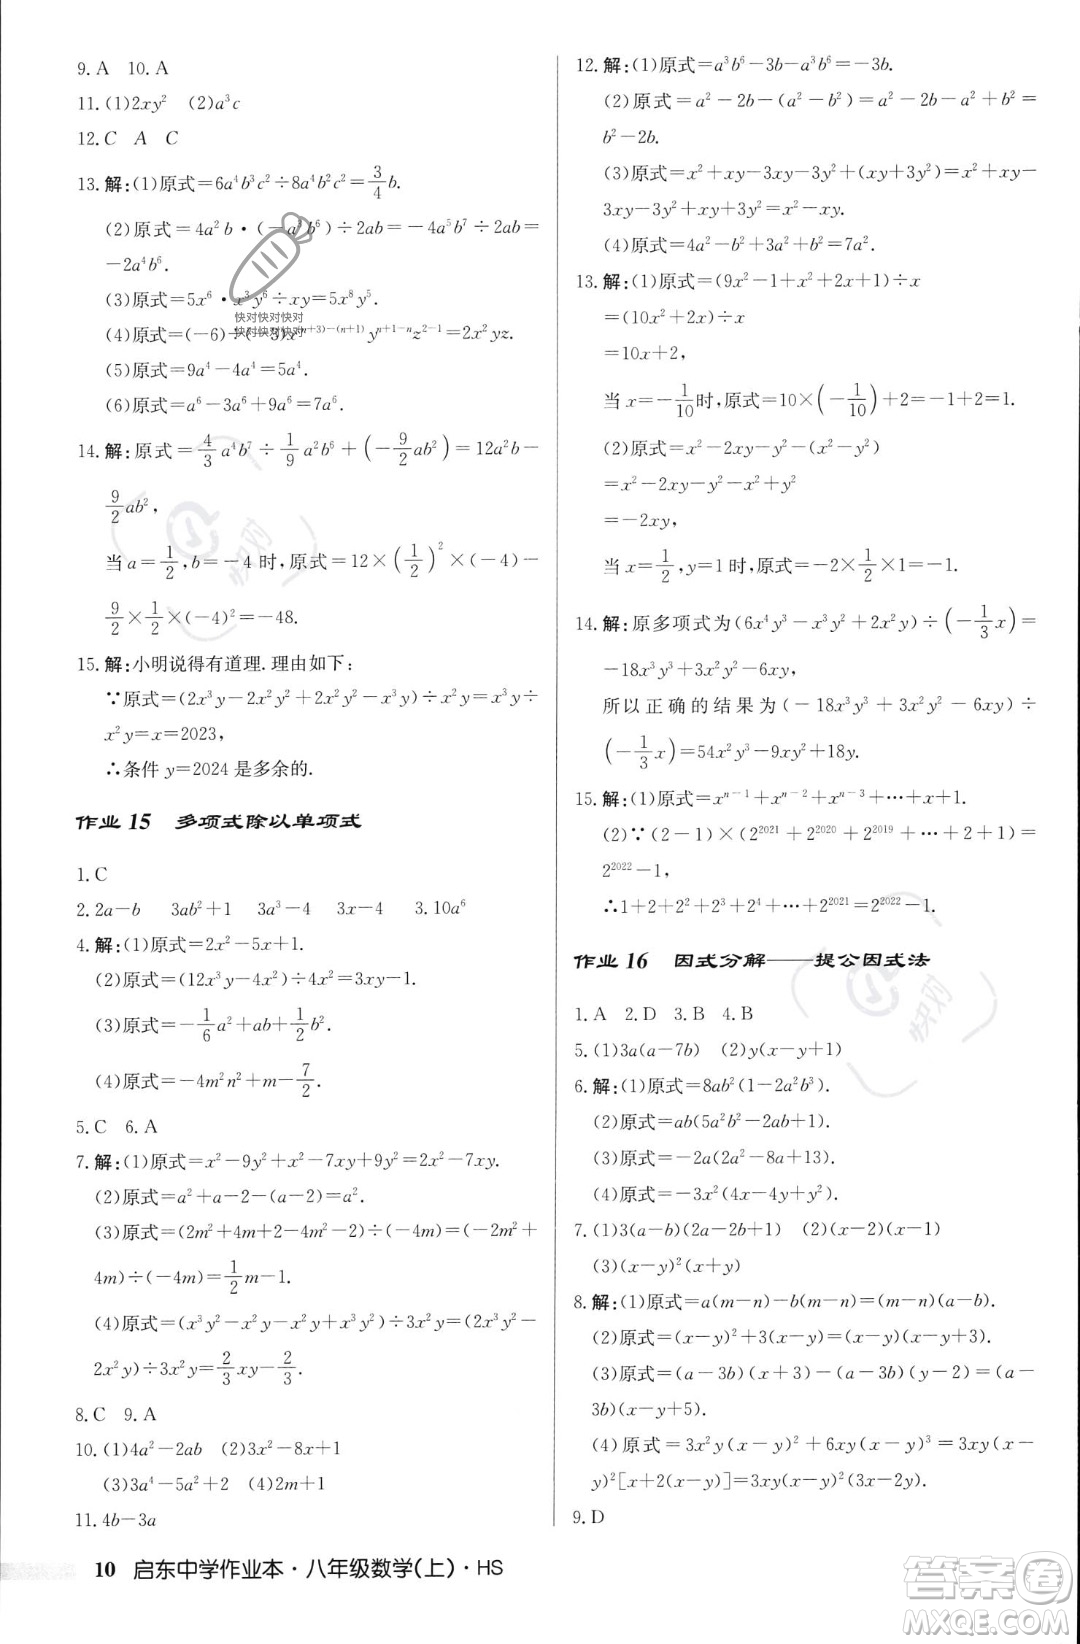 9. A　10. A
11. (1)2xy²　(2)a³c
12. C　A　C
13. 解:(1)原式=6a⁴b³c²÷8a⁴b²c²=3/4 b.
(2)原式=4a²b·(-a³b⁶)÷2ab=-4a⁵b⁷÷2ab=
-2a⁴b⁶.
(3)原式=5x⁶·x³y⁶÷xy=5x⁸y⁵.
(4)原式=(-6)÷(-3)x⁽ⁿ⁺³⁾⁻⁽ⁿ⁺¹⁾yⁿ⁺¹⁻ⁿz²⁻¹=2x²yz.
(5)原式=9a⁴-4a⁴=5a⁴.
(6)原式=a⁶-3a⁶+9a⁶=7a⁶.
14. 解:原式=4/3 a⁴b⁷÷1/9 a²b⁶+(-9/2 ab²)=12a²b-
9/2 ab²,
当a=1/2,b=-4时,原式=12×(1/2)²×(-4)-
9/2×1/2×(-4)²=-48.
15. 解:小明说得有道理.理由如下:
∵原式=(2x³y-2x²y²+2x²y²-x³y)÷x²y=x³y÷
x²y=x=2023,
∴条件y=2024是多余的.
作业15　多项式除以单项式
1. C
2. 2a-b　3ab²+1　3a³-4　3x-4　3. 10a⁶
4. 解:(1)原式=2x²-5x+1.
(2)原式=(12x³y-4x²)÷4x²=3xy-1.
(3)原式=-1/6 a²+ab+1/2 b².
(4)原式=-4m²n²+m-7/2.
5. C　6. A
7. 解:(1)原式=x²-9y²+x²-7xy+9y²=2x²-7xy.
(2)原式=a²+a-2-(a-2)=a².
(3)原式=(2m²+4m+2-4m²-2)÷(-4m)=(-2m²+
4m)÷(-4m)=1/2 m-1.
(4)原式=(x³y²-x²y-x²y+x³y²)÷3x²y=(2x³y²-
2x²y)÷3x²y=2/3 xy-2/3.
8. C　9. A
10. (1)4a²-2ab　(2)3x²-8x+1
(3)3a⁴-5a²+2　(4)2m+1
11. 4b-3a
12. 解:(1)原式=a³b⁶-3b-a³b⁶=-3b.
(2)原式=a²-2b-(a²-b²)=a²-2b-a²+b²=
b²-2b.
(3)原式=x²+xy-3xy-3y²+(xy+3y²)=x²+xy-
3xy-3y²+xy+3y²=x²-xy.
(4)原式=4a²-b²+3a²+b²=7a².
13. 解:(1)原式=(9x²-1+x²+2x+1)÷x
=(10x²+2x)÷x
=10x+2,
当x=-1/10时,原式=10×(-1/10)+2=-1+2=1.
(2)原式=x²-2xy-(x²-y²)
=x²-2xy-y²-x²+y²
=-2xy,
当x=1/2,y=1时,原式=-2×1/2×1=-1.
14. 解:原多项式为(6x⁴y³-x³y²+2x²y)÷(-1/3 x)=
-18x³y³+3x²y²-6xy,
所以正确的结果为(-18x³y³+3x²y²-6xy)÷
(-1/3 x)=54x²y³-9xy²+18y.
15. 解:(1)原式=xⁿ⁻¹+xⁿ⁻²+xⁿ⁻³+…+x+1.
(2)∵(2-1)×(2²⁰²¹+2²⁰²⁰+2²⁰¹⁹+…+2+1)=
2²⁰²²-1,
∴1+2+2²+2³+2⁴+…+2²⁰²¹=2²⁰²²-1.
作业16　因式分解——提公因式法
1. A　2. D　3. B　4. B
5. (1)3a(a-7b)　(2)y(x-y+1)
6. 解:(1)原式=8ab²(1-2a²b²).
(2)原式=ab(5a²b²-2ab+1).
(3)原式=-2a(2a²-8a+13).
(4)原式=-3x²(4x-4y+y²).
7. (1)3(a-b)(2a-2b+1)　(2)(x-2)(x-1)
(3)(x-y)²(x+y)
8. 解:(1)原式=a(m-n)-b(m-n)=(m-n)(a-b).
(2)原式=(x-y)²+3(x-y)=(x-y)(x-y+3).
(3)原式=(x-y)(a-3b)+5(a-3b)=(a-
3b)(x-y+5).
(4)原式=3x²y(x-y)²+6xy(x-y)²=3xy(x-
y)²[x+2(x-y)]=3xy(x-y)²(3x-2y).
9. D
10　启东中学作业本·八年级数学(上)·HS
快对快对快对
快对快对快对
快对
快对
答案卷
MXQE.COM